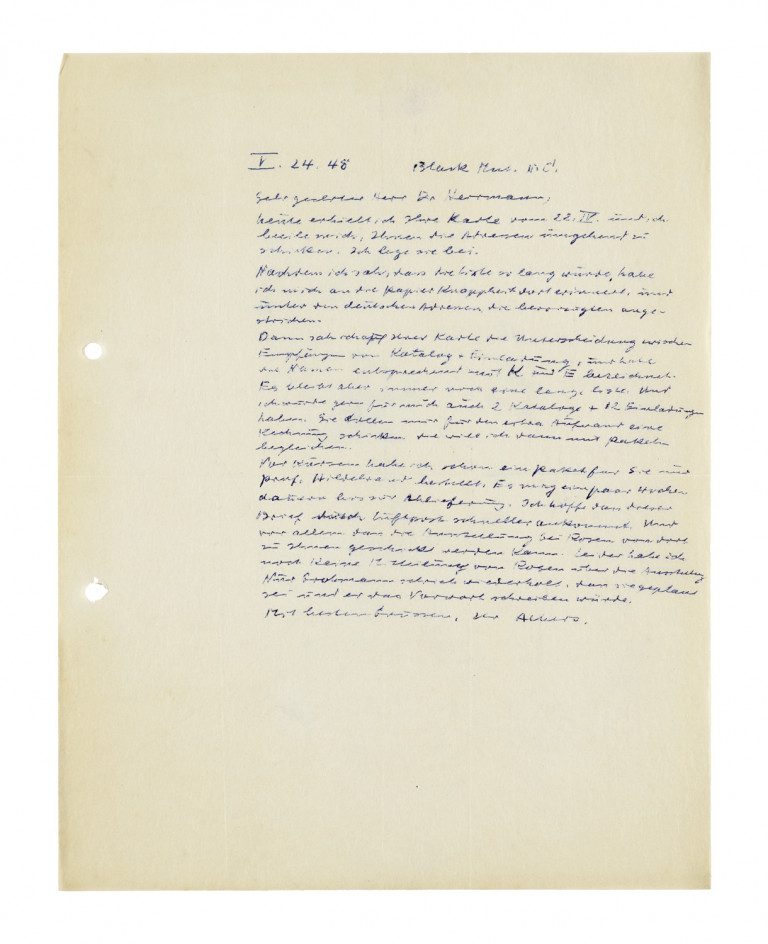 V. 24. 48 Black Mn. N.C.
Sehr geehrter Herr Dr Herrmann,
heute erhielt ich Ihre Karte vom 22. IV. und ich
beeile mich, Ihnen die Adressen umgehend zu
schicken. Ich lege sie bei.
Nachdem ich sah, dass die Liste so lang würde, habe
ich mich an die Papier Knappheit dort erinnert, und
unter den deutschen Adressen die bevorzugten ange-
strichen.
Dann sah ich auf Ihrer Karte die Unterscheidung zwischen
Empfänger von Katalog + Einladung, und habe
die Namen entsprechend mit K und E bezeichnet.
Es bleibt aber immer noch eine lange Liste. Und
ich würde gern für mich auch 2 Kataloge + 12 Einladungen
haben. Sie sollen mir für den extra Aufwand eine
Rechnung schicken, die will ich dann mit Paketen
begleichen.
Vor Kurzem habe ich schon ein Paket für Sie und
Prof. Hildebrandt bestellt. Es mag ein paar Wochen
dauern bis zur Ablieferung. Ich hoffe dass dieser
Brief durch Luftpost schneller ankommt. Und
vor allem dass die Ausstellung bei Rosen von dort
zu Ihnen geschickt werden kann. Leider habe ich
noch keine Mitteilung von Rosen über die Ausstellung
Nur Grohmann schrieb wiederholt, dass sie geplant
sei und er das Vorwort schreiben würde.
Mit besten Grüssen, Ihr Albers.